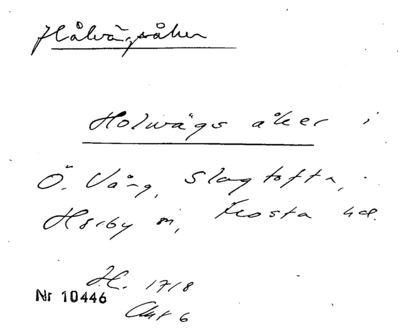 Hålvägsåker
Holwägs åker i
Ö. Vång, Slagtofta,
Hörby sn, Frosta hd.
H. 1718
Nr 10446
Akt 6